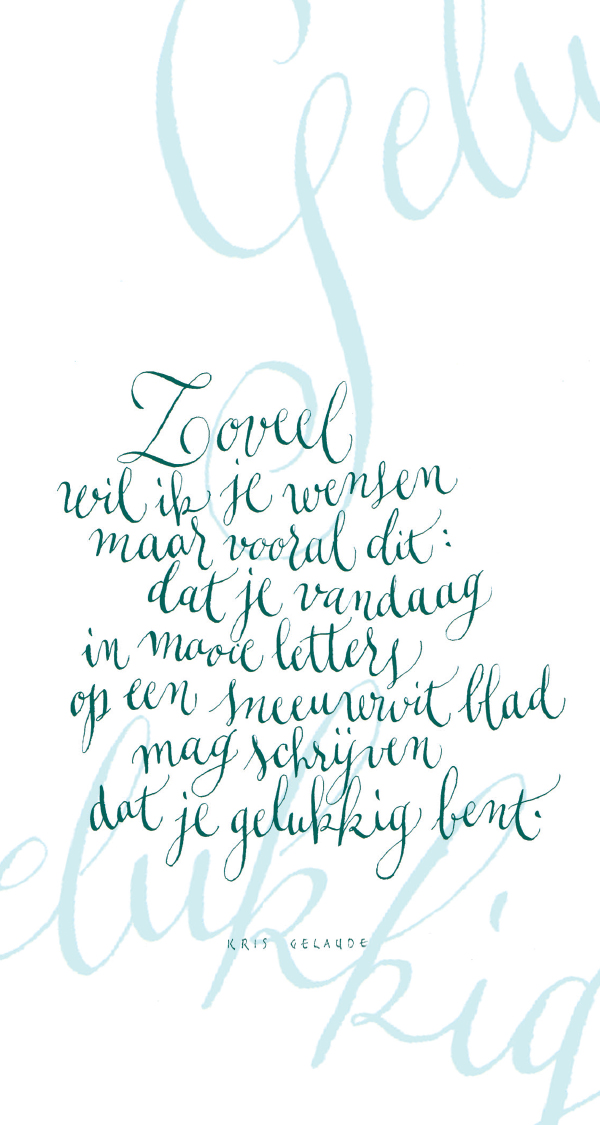 Gelu
Zoveel
wil ik je wensen
maar vooral dit:
dat je vandaag
in mooie letters
op een sneeuwwit blad
mag schrijven
dat je gelukkig bent.
elukkig
KRIS GELAUDE